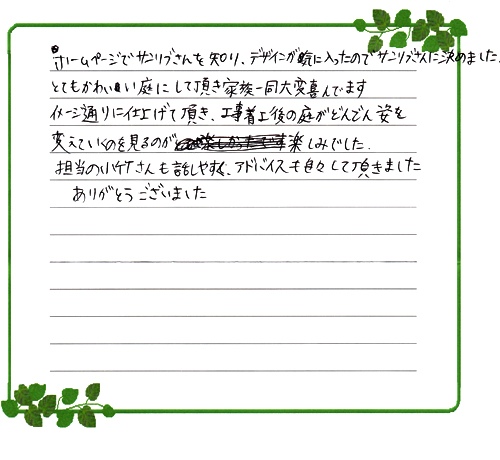 ホームページでサンリブさんを知り、デザインが瞳に入ったのでサンリブさんに決めました.
とてもかわいい庭にして頂き家族一同大変喜んでます
イメージ通りに仕上げて頂き、工事着工後の庭がどんどん姿を
変えていくのを見るのが楽しみでした.
担当の小竹さんも話しやすく、アドバイスも色々して頂きました
ありがとうございました